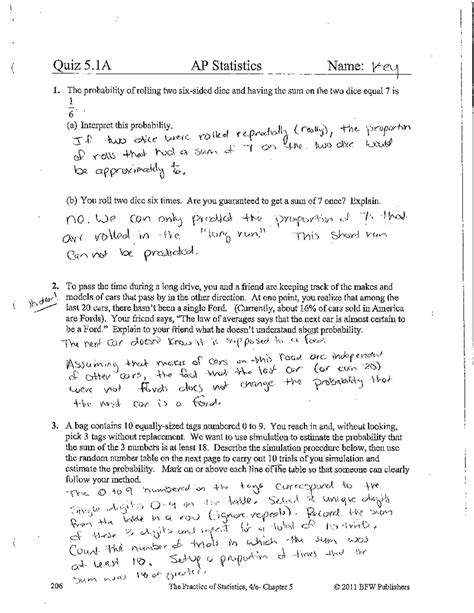 Quiz 5.1A AP Statistics Name: Key
1. The probability of rolling two six-sided dice and having the sum on the two dice equal 7 is
1
6 .
(a) Interpret this probability.
If two dice were rolled the proportion
of rolls that had a sum of 7 on the two dice would
be approximately 1/6.
(b) You roll two dice six times. Are you guaranteed to get a sum of 7 once? Explain.
no. We can only predict the proportion of 7s that
are rolled in the "long run." This short run
cannot be predicted.
2. To pass the time during a long drive, you and a friend are keeping track of the makes and
models of cars that pass by in the other direction. At one point, you realize that among the
last 20 cars, there hasn't been a single Ford. (Currently, about 16% of cars sold in America
are Fords). Your friend says, "The law of averages says that the next car is almost certain to
be a Ford." Explain to your friend what he doesn't understand about probability.
The next car doesn't know it is supposed to be a ford.
Assuming that makes of cars on this road are independent
of other cars, the fact that the last car (or even 20)
were not Fords does not change the probability that
the next car is a Ford.
3. A bag contains 10 equally-sized tags numbered 0 to 9. You reach in and, without looking,
pick 3 tags without replacement. We want to use simulation to estimate the probability that
the sum of the 3 numbers is at least 18. Describe the simulation procedure below, then use
the random number table on the next page to carry out 10 trials of your simulation and
estimate the probability. Mark on or above each line of the table so that someone can clearly
follow your method.
The 0 to 9 numbered on the tags correspond to the
single digits 0-9 on the table. Select 3 unique digits
from the table in a row (ignore repeats). Record the sum
of these 3 digits and repeat for a total of 10 trials.
Count the number of trials in which the total was
Setup a proportion of times that the
sum was 18 or greater.
206 The Practice of Statistics, 4/e- Chapter 5 © 2011 BFW Publishers